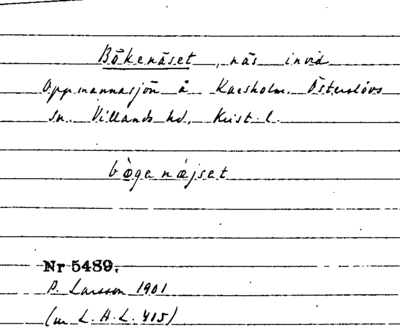 Bökenäset, näs invid
Oppmannasjön å Karsholm. Österslövs
sn. Villands hd, Krist. l.
bögenæjset
Nr 5489.
P. Larsson 1901
(ur L.H.L. 415)